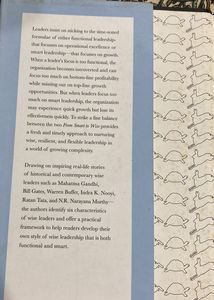 Leaders insist on sticking to the time-tested
formulae of either functional leadership—
that focuses on operational excellence or
smart leadership—that focuses on growth.
When a leader's focus is too functional, the
organization becomes introverted and can
focus too much on bottom-line profitability
while missing out on top-line growth
opportunities. But when leaders focus too
much on smart leadership, the organization
may experience quick growth but lose its
effectiveness quickly. To strike a fine balance
between the two From Smart to Wise provides
a fresh and timely approach to nurturing
wise, resilient, and flexible leadership in
a world of growing complexity.
Drawing on inspiring real-life stories
of historical and contemporary wise
leaders such as Mahatma Gandhi,
Bill Gates, Warren Buffet, Indra K. Nooyi,
Ratan Tata, and N.R. Narayana Murthy—
the authors identify six characteristics
of wise leaders and offer a practical
framework to help readers develop their
own style of wise leadership that is both
functional and smart.